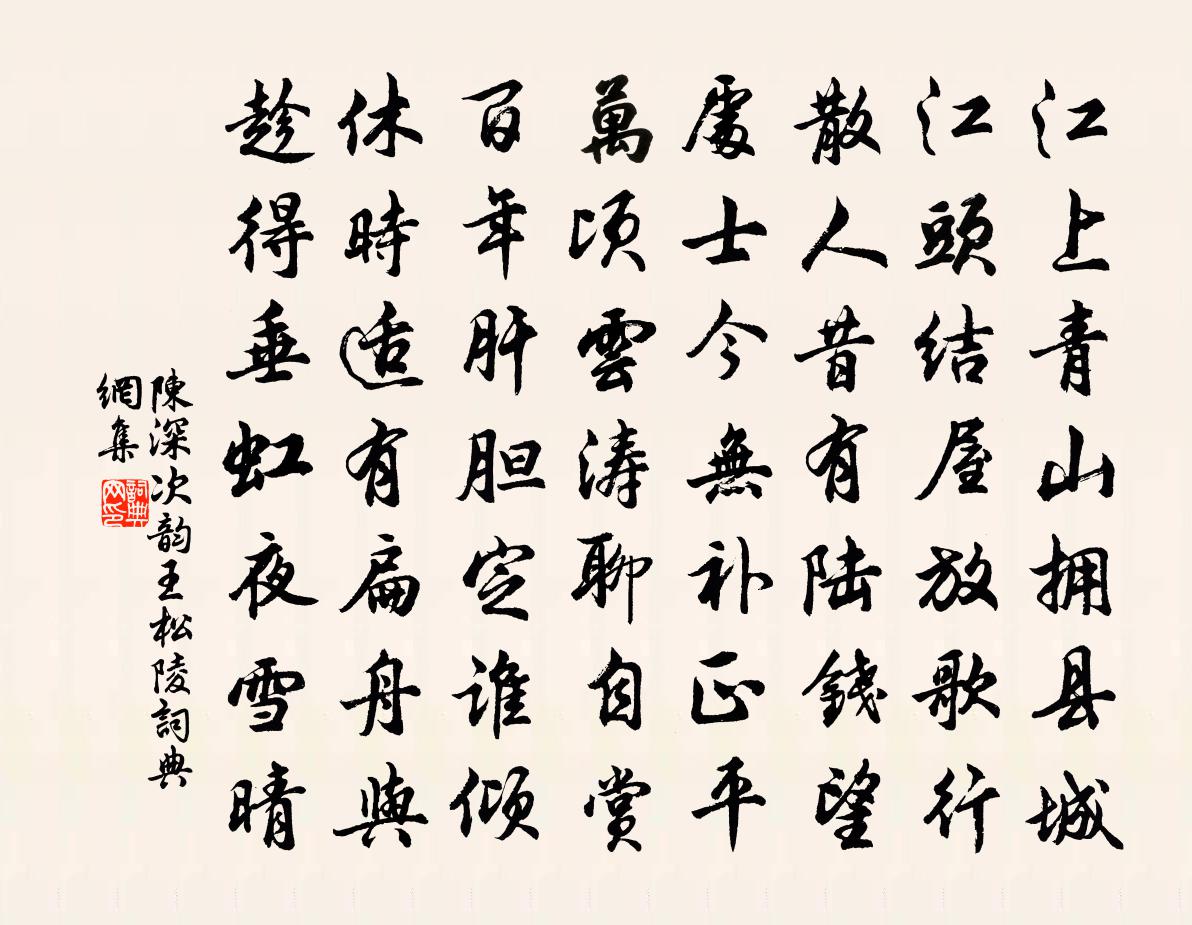 江上青山拥县城
江頭结屋放歌行
散人昔有陆錢望
處士今無补正平
萬頃雲涛聊自赏
百年肝胆定谁倾
休時适有扁舟興
趁得垂虹夜雪晴
陳深次韵王松陵詞典
網集
詞典
网印